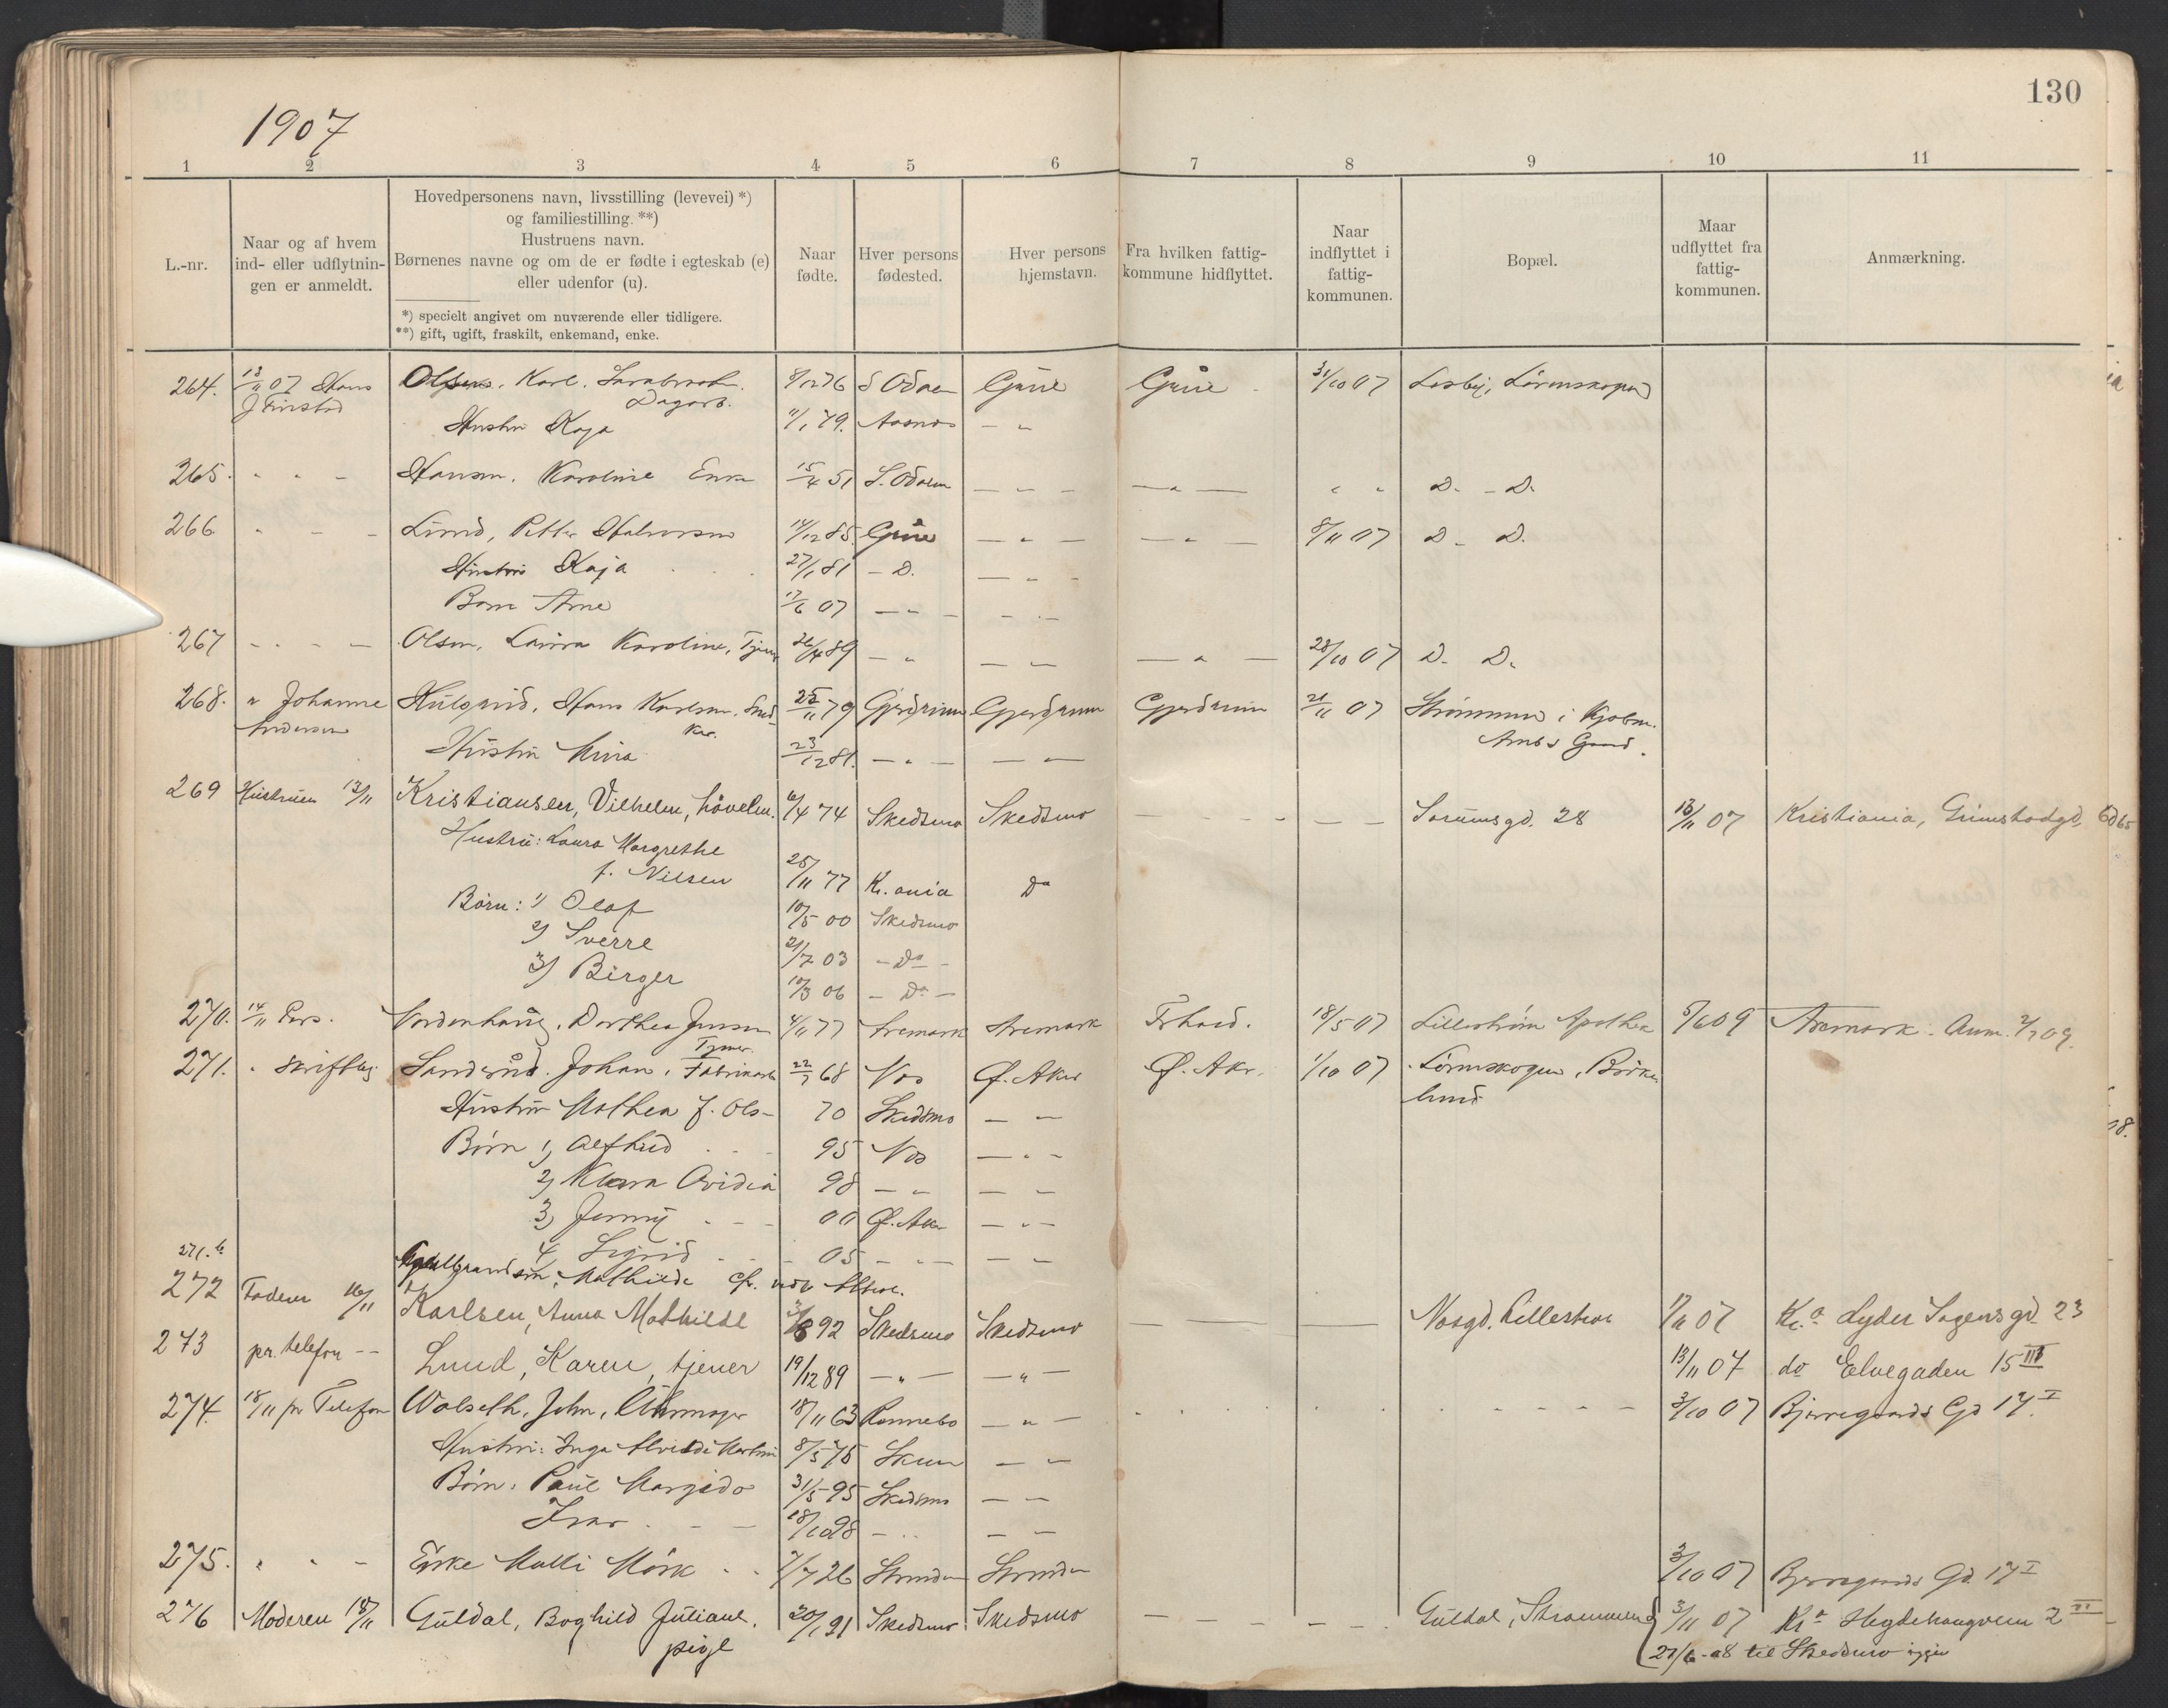 130
1907
1 2 3 4 5 6 7 8 9 10 11
L.-nr.
Naar og af hvem
ind- eller udflytnin-
gen er anmeldt.
Hovedpersonens navn, livsstilling (levevei) *)
og familiestilling. **)
Hustruens navn.
Børnenes navne og om de er fødte i egteskab (e)
eller udenfor (u).
*) specielt angivet om nuværende eller tidligere.
**) gift, ugift, fraskilt, enkemand, enke.
Naar
fødte.
Hver persons
fødested.
Hver persons
hjemstavn.
Fra hvilken fattig-
kommune hidflyttet.
Naar
indflyttet i
fattig-
kommunen.
Bopæl.
Maar
udflyttet fra
fattig-
kommunen.
Anmærkning.
264. 13/11 07 Hans Olsen. Karl. 8/12 76 S Odalen Grue Grue 31/10 07 Losby, Lørenskogen
J Finstad Dagarb.
Hustru Kaja 11/1 79. Aasnes — "
265. " " – Hansen. Karoline Enke 15/4 51 S. Odalen — " — — " — " " D. – D.
266 " – – Lund, Petter Halvorsen 14/12 85 Grue — " — — " — 8/11 07 D. D.
Hustru Kaja 27/1 81 – D. — " –
Barn Arne 17/6 07 — " – – " –
267 – " – — Olsen, Laura Karoline, Tjener 26/4 89 – " — " — " — 28/10 07 D. D.
268. " Johanne Hulqvid, Hans Karlsen. Sned 25/11 79 Gjerdrum Gjerdrum Gjerdrum 21/11 07 Strømmen i Kjøbm.
Andersen ker. Gaard.
Hustru Mina 23/12 81. — " — — "
269 Hustruen 13/11 Kristiansen, Vilhelm, høvelm. 6/4 74 Skedsmo Skedsmo — – – – — — Sørumsgd. 28 13/11 07 Kristiania, Grimstadgd,
Hustru: Laura Margrethe
f. Nilsen 25/11 77 Kr.ania Do
Børn: 1) Olaf 10/5 00 Skedsmo
2) Sverre 21/7 03 – Do –
3) Birger 10/3 06 – Do –
270. 14/11 Pers. Nordenhaug, Dorthea Jensen 4/11 77 Aremark Aremark 18/5 07 Lillestrøm Apothek 5/6 09 Aremark. Anm. 2/7 09.
Tjener.
271. " skriftlig Sanderud. Johan, Fabrikarb 22/7 68 Nes Ø. Aker Ø. Aker. 1/10 07 Lørenskogen, Birke
lund
Hustru Mathea f. Ols– 70 Skedsmo — "
Børn 1, Alfhild 95 Nes — " –
2) Klara Ovidia 98 — " — "
3) Jenny 00 Ø. Aker — " –
4, Sigrid 05 — " — — "
271.b Mathilde
272 Faderen 16/11 Karlsen, Anna Mathilde 92 Skedsmo Skedsmo — — — Nesgd. Lillestrøm 07 Kr.a Lyder Sagensgd 23
273 pr. telefon – – Lund, Karen, tjener 19/12 89 — " — — " — 13/11 07 do Elvegaden 15 III
274. 18/11 pr Telefon Wolseth, John, Uhrmager 18/11 63 Rennebo — " — 3/10 07 Bjerregaards Gd 17 I
Hustru: Inga Alvilde 8/5 75 Skeun — "
Børn: Paul Margido 31/5 95 Skedsmo — "
Ivar 18/10 98 – " — "
275. " " – Enke Malli Mørk 7/7 26 Strinden Strinden 3/10 07 Bjerregaards Gd. 17 I
276 Moderen 18/11 Guldal, Boghild Juliane. 20/1 91 Skedsmo Skedsmo — – – — Guldal, Strømmen 3/11 07 Kr.a Hegdehaugveien 2 III
pige 27/6 – 08 til Skedsmo igjen